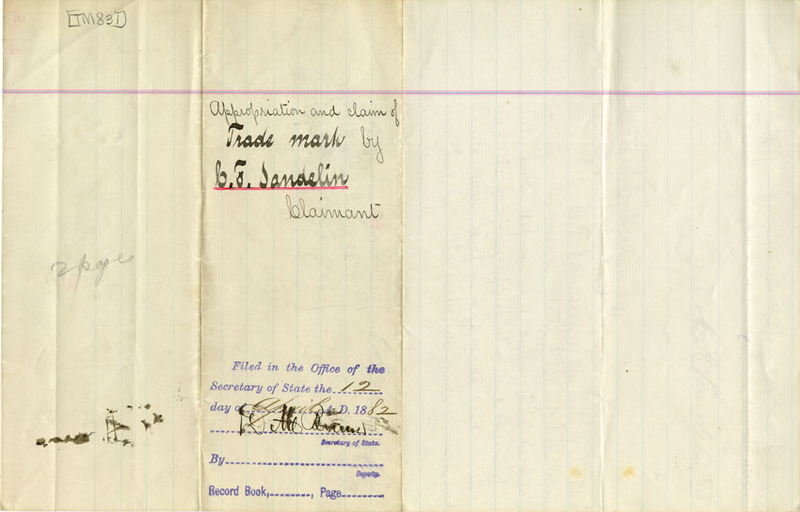 [TM837]
Appropriation and claim of
Trade mark by
C. F. Sandelin
Claimant
2 pages
Filed in the Office of the
Secretary of State the 12
day of April A. D. 1882
Secretary of State.
By
Deputy.
Record Book, , Page